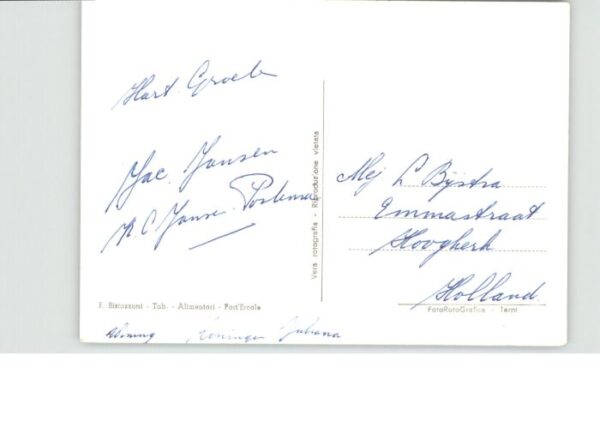 Hart Groete
Jac. Jansen
K C Jansen-Postema
F. Bistazzoni - Tab. - Alimentari - Port'Ercole
Woning Koningin Juliana
Vera rotografia - Riproduzione vietata
Mej L Bijstra
Emmastraat
Hoogkerk
Holland.
FotoRotoGrafica - Terni